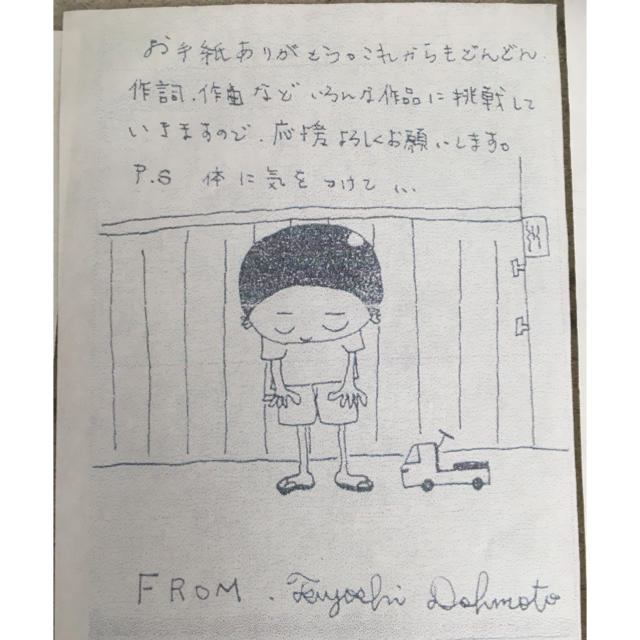 お手紙ありがとう。これからもどんどん
作詞、作曲など いろんな作品に挑戦して
いきますので、応援よろしくお願いします。
P.S 体に気をつけて...
FROM. Tsuyoshi Dohmoto